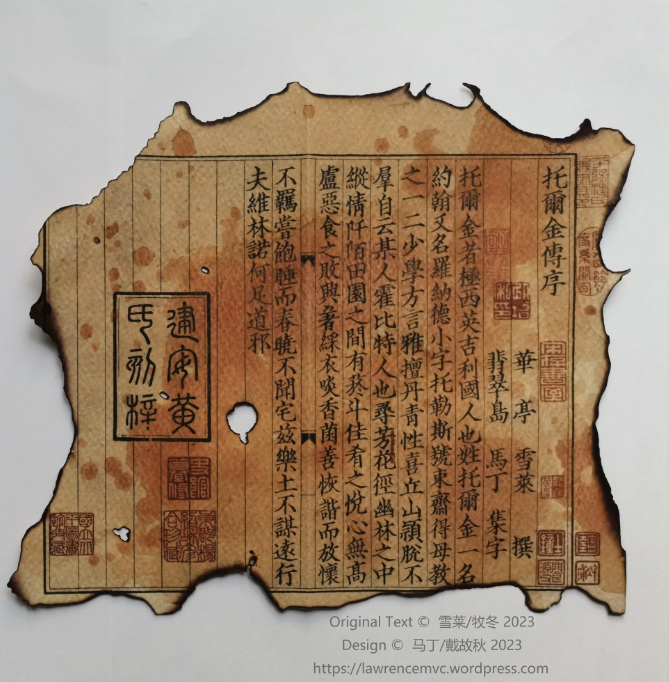 托爾金傳序
華亭 雪萊 撰
翡翠島 馬丁 集字
托爾金者極西英吉利國人也姓托爾金一名
約翰又名羅納德小字托勒斯號東齋得母教
之一二少學方言雅擅丹青性喜丘山頴脫不
羣自云某人霍比特人也尋芳花徑幽林之中
縱情阡陌田園之間有菸斗佳肴之悅心無高
盧惡食之敗興耆綵衣啖香菌善恢諧而放懷
不羈嘗飽睡而春曉不聞宅茲樂土不謀遠行
夫維林諾何足道邪
建安黄
氏刻梓
Original Text © 雪莱/牧冬 2023
Design © 马丁/戴故秋 2023
https://lawrencemvc.wordpress.com